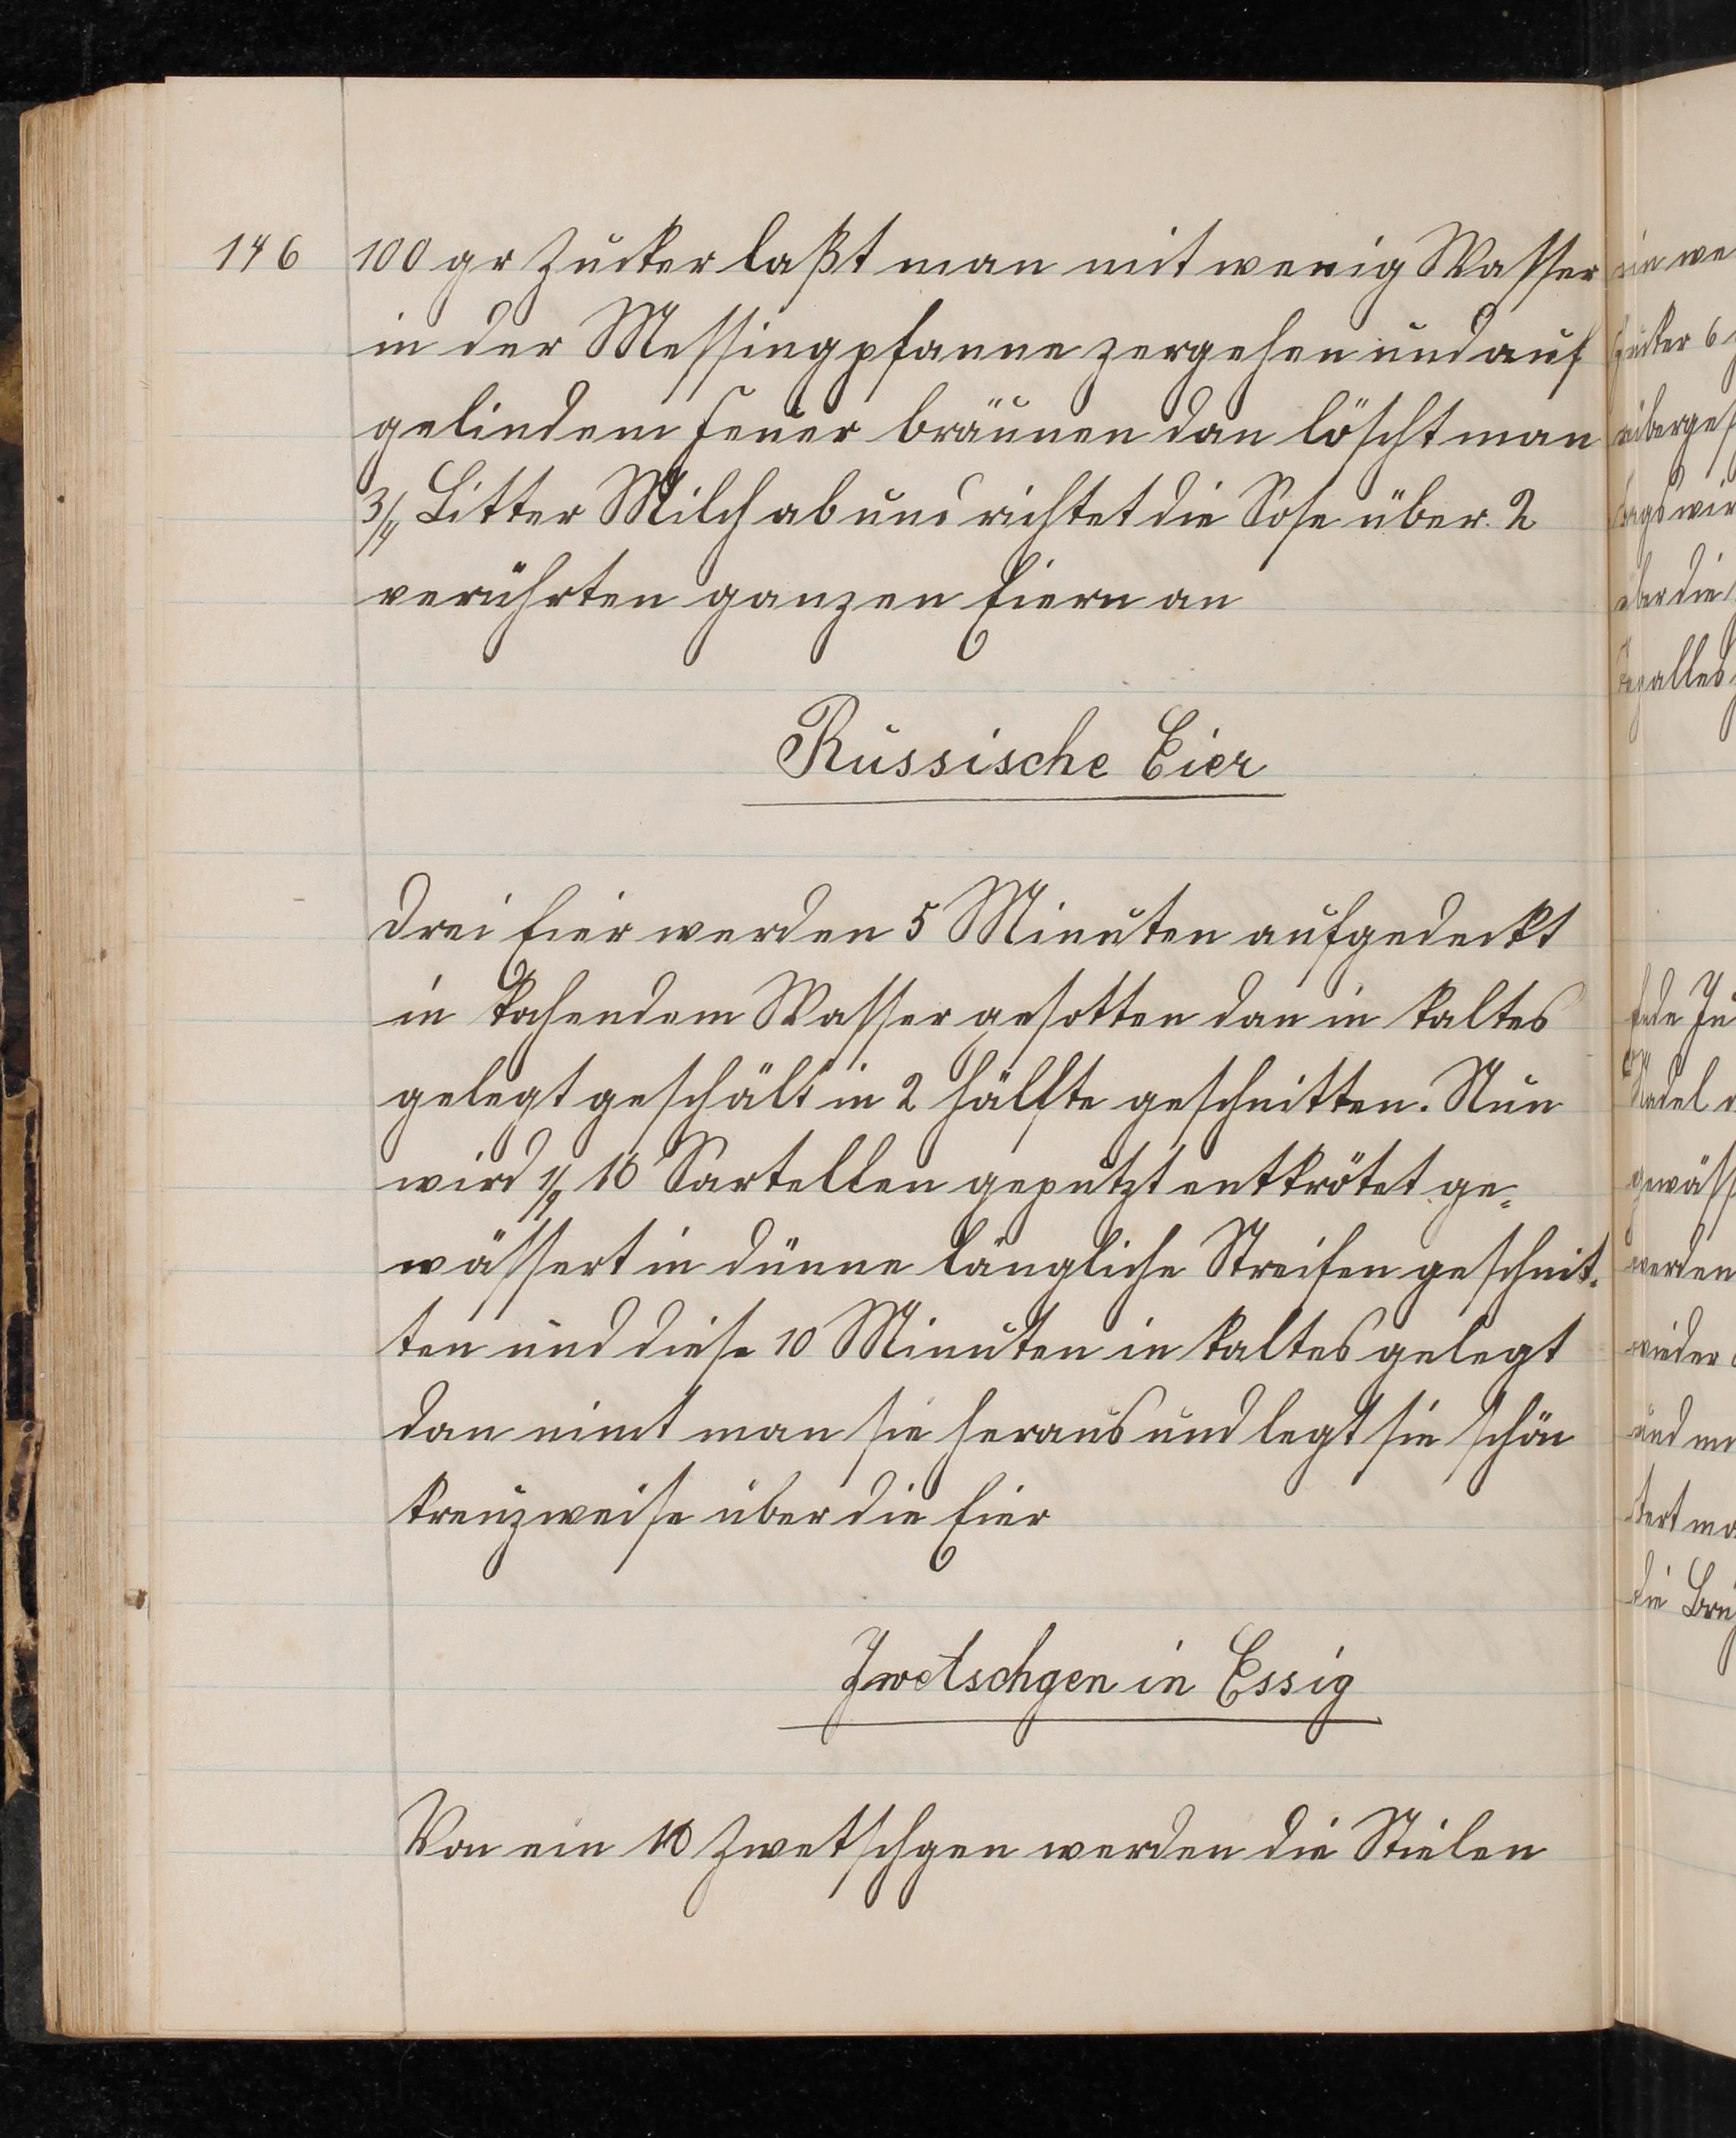 146
100 gr Zucker laßt man mit wenig Wasser
in der Messingpfanne zergehen und auf
gelindem Feuer bräunen dan löscht man
3/4 Litter Milch ab und richtet die Sose über 2
verührten ganzen Eiern an
Russische Eier
Drei Eier werden 5 Minuten aufgedeckt
in kochendem Wasser gesotten dan in kaltes
gelegt geschält in 2 Hälfte geschnitten. Nun
wird 1/4 ℔ Sartellen geputzt entkrötet ge-
wässert in dünne längliche Streifen geschnit-
ten und diese 10 Minuten in kaltes gelegt
dan nimt man sie heraus und legt sie schön
kreuzweise über die Eier
Zwetschgen in Essig
Von ein ℔ Zwetschgen werden die Stielen